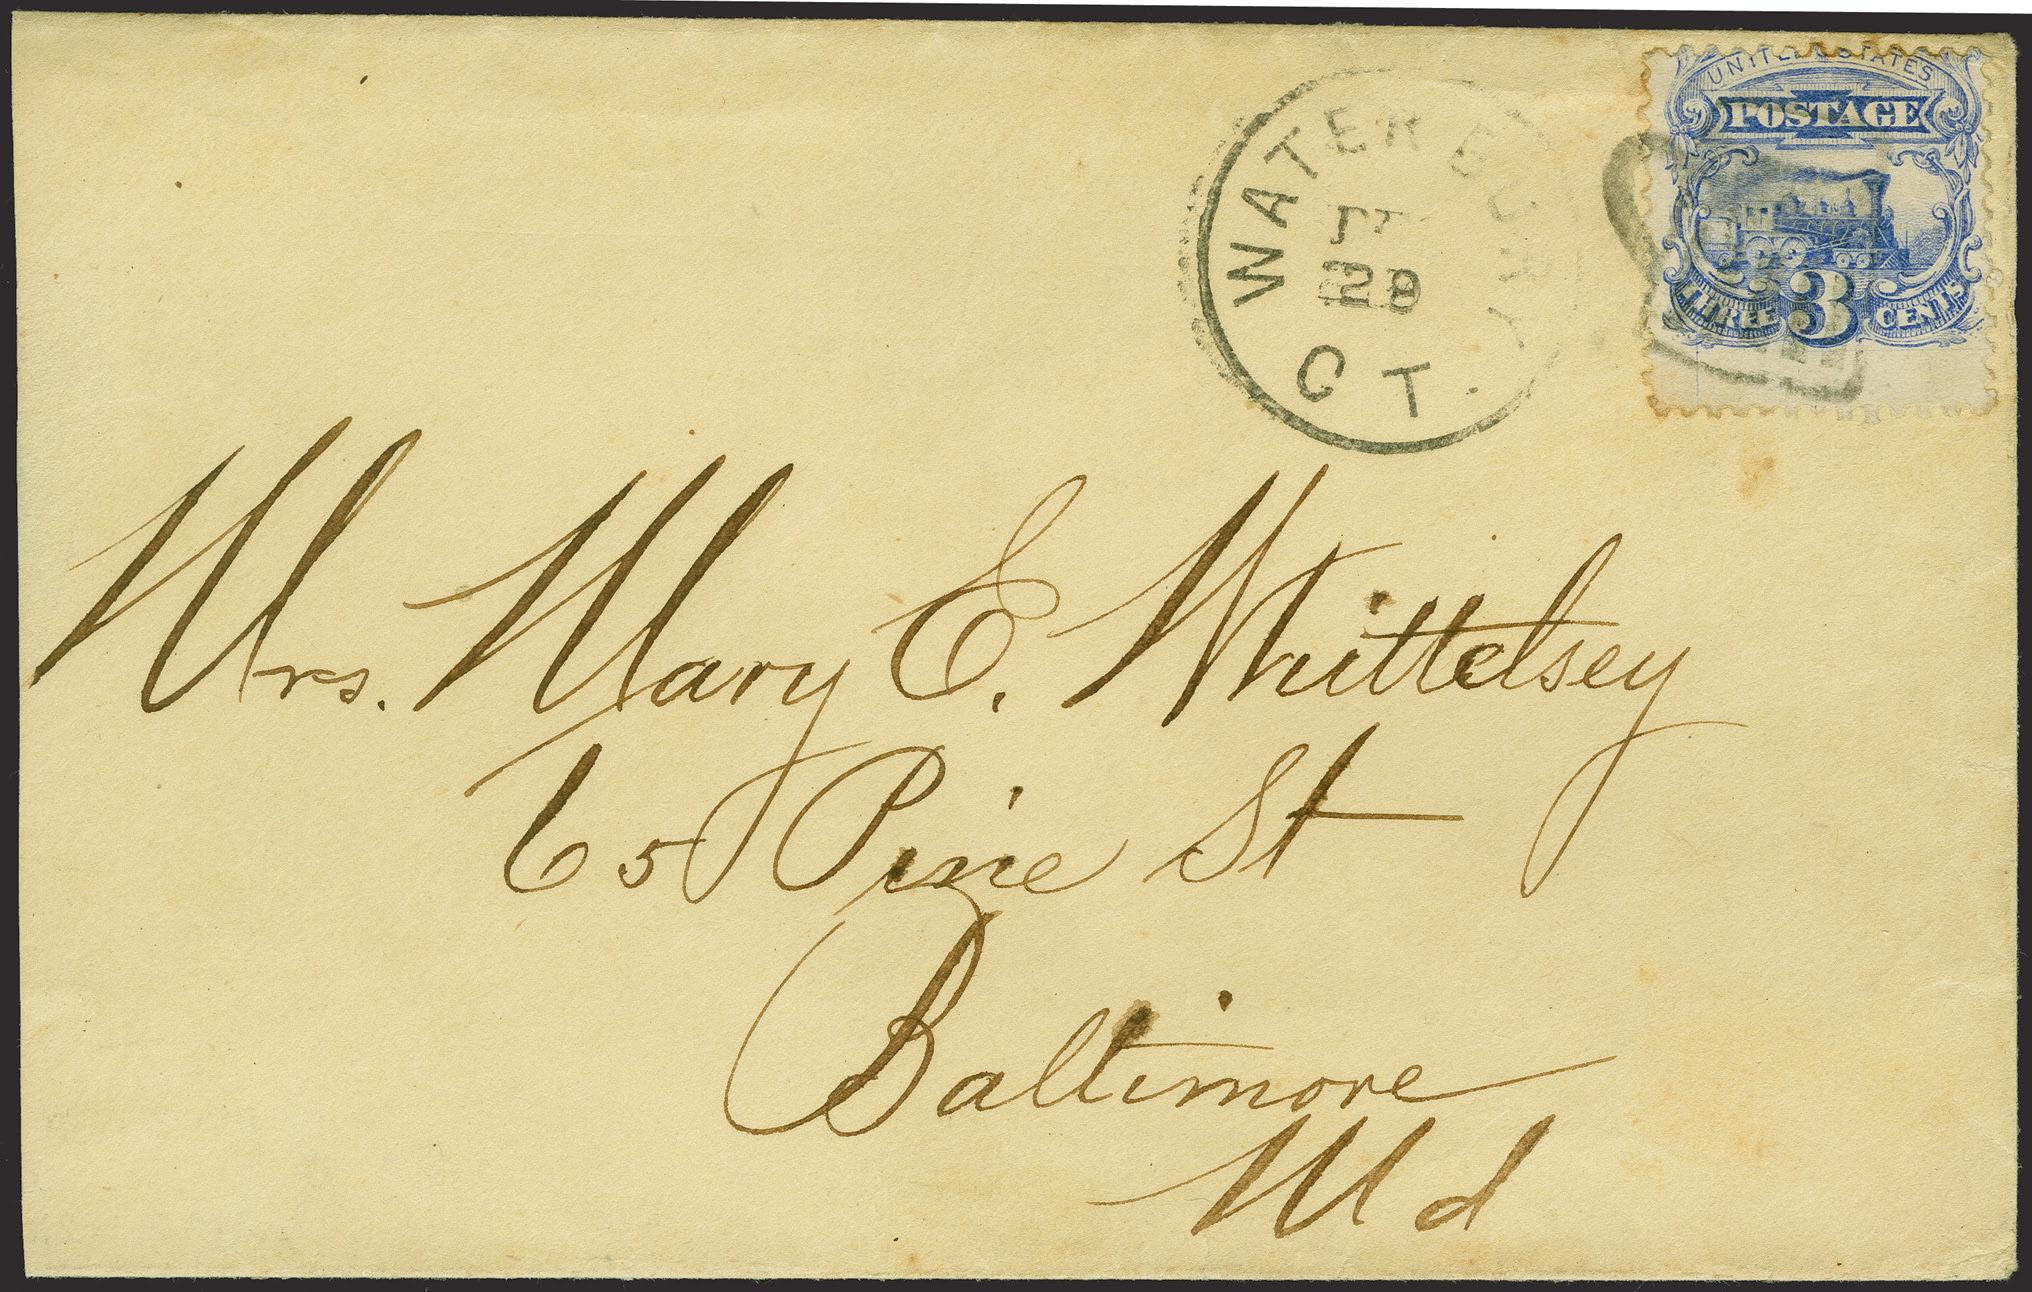 UNITED STATES
POSTAGE
THREE 3 CENTS
WATERBURY
28
CT.
Mrs. Mary E. Whittelsey
65 Pine St
Baltimore
Md